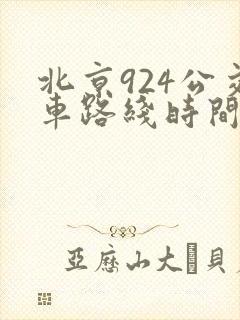 北京924公交
車路綫時間
亞歷山大貝